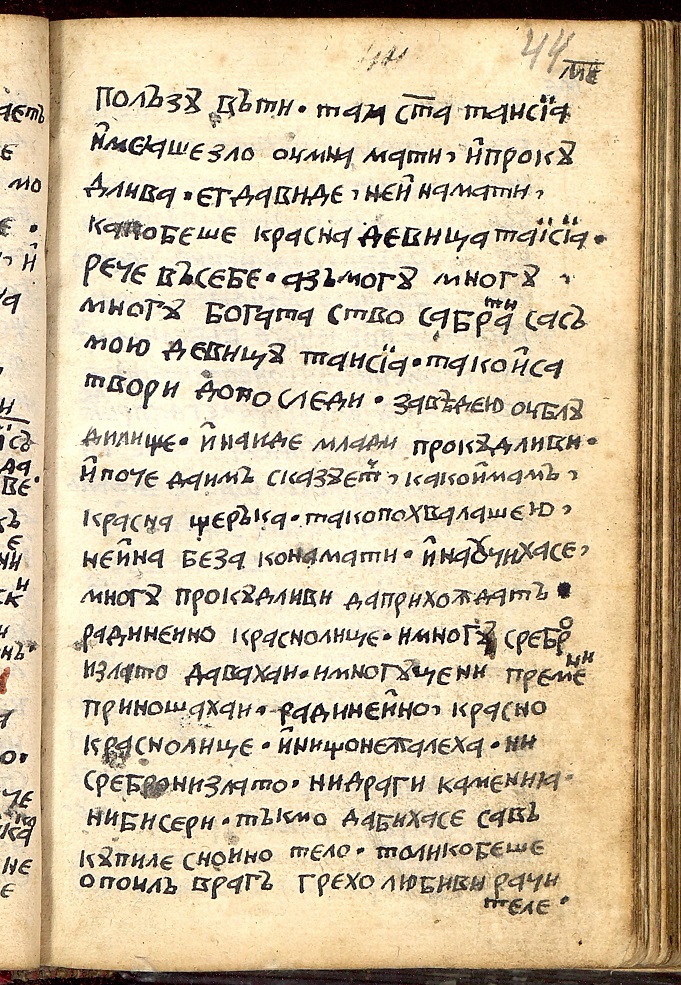 44 м҃е
ползꙋ вьти · таꙗ ст҃а таисїа
и҆меꙗше зло оумна мати , и҆ прокꙋ
длива · егда виде , неи҆на мати ,
како беше красна девица таїсїа ·
рече въсебе · азъ могꙋ многꙋ ,
многꙋ богата ство сабра ти сасъ
мою девицꙋ таисїа · тако и҆ са
твори допоследи · заведею оу блꙋ
дилище · и҆ наиде млади прокꙋдливи ·
и҆ поче даимъ сказꙋет , како и҆мамъ ,
красна щерька · тако похвалашею ,
неи҆на беза кона мати · и҆ наꙋчихасе ,
многꙋ прокꙋдливи даприхождатъ ·
радинеино краснолице · и многꙋ сребро
изла то давахаи · имногꙋ цени премени
приношахаи · радинеи҆но , красно
краснолице · и҆нищо нежалеха · ни
сребро низлато · нидраги камениꙗ
нибисери · тъкмо дабихасе савъ
кꙋпиле снеино тело · толико беше
опоилъ врагъ грехо любиви рачи
теле ·